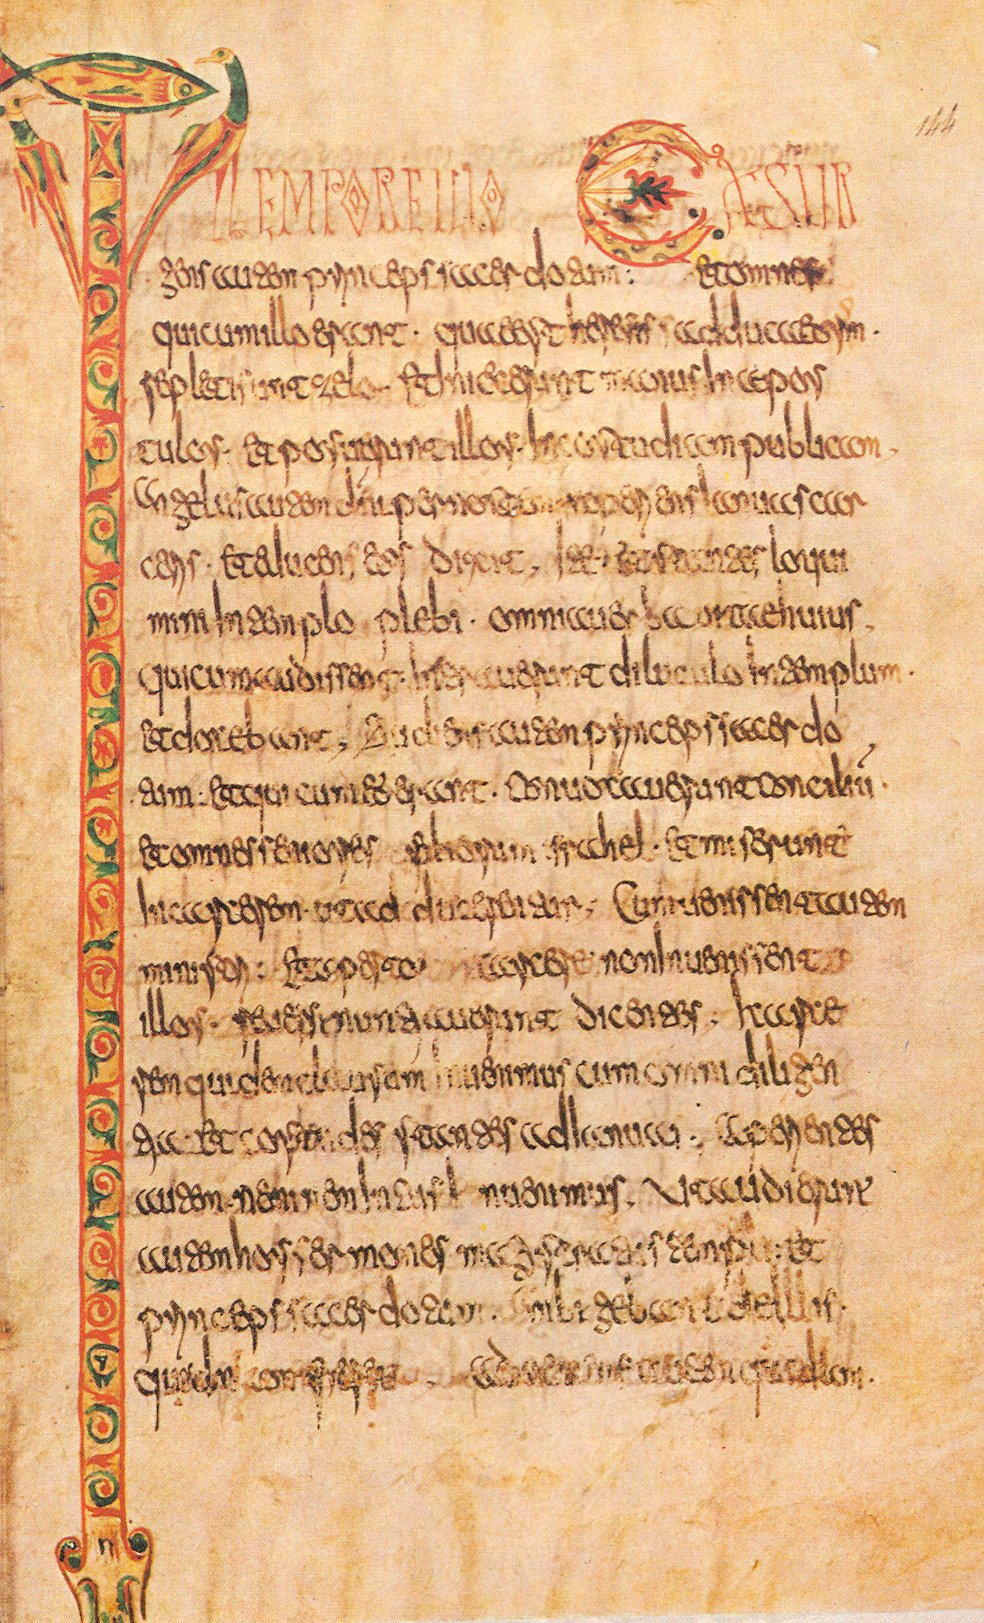 144
IN TEMPORE ILLO EXSUR
gens autem princeps sacerdotum: et omnes
qui cum illo erant. quae est heresis sadducaeorum.
repleti sunt zelo. Et iniecerunt manus in apos
tulos. et posuerunt illos. in custudiam publicam.
Angelus autem dni per noctem aperiens ianuas car
ceris. et educens eos dixit. Ite. et stantes loqui
mini in templo plebi. omnia uerba uitae huius.
Qui cum audissent. intrauerunt diluculo in templum.
et docebant. Audiens autem princeps sacerdo
tum. et qui cum eo erant. conuocauerunt conciliū.
et omnes seniores filiorum israhel. Et miserunt
in carcerem. ut adducerentur. Cum uenissent autem
ministri. et aperto carcere non inuenissent
illos. reuersi nunciauerunt dicentes. Carce
rem quidem clausum inuenimus cum omni diligen
tia. et custodes stantes ad ianuas. Aperientes
autem. neminem intus inuenimus. Ut audierunt
autem hos sermones magistratus templi. et
princeps sacerdotum. ambigebant de illis.
quidnam fieret. adueniens autem quidam.